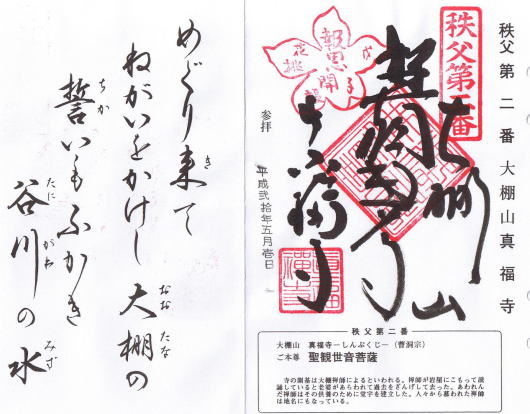 秩父第二番大棚山真福寺
秩父第二番
報恩
開
花桃
大棚山
真福寺
参拝
平成弐拾年五月壱日
秩父第二番
大棚山 真福寺－しんぷくじ－(曹洞宗)
ご本尊 聖観世音菩薩
寺の開基は大棚禅師によるといわれる。禅師が岩屋にこもって読
誦していると老婆があらわれて過去をざんげして去った。あわれん
だ禅師はその供養のために堂宇を建立した。人々から慕われた禅師
は地名にもなっている。
めぐり来て
き
ねがいをかけし 大棚の
おお たな
誓いもふかき
ちか
谷川の水
たに がわ みず